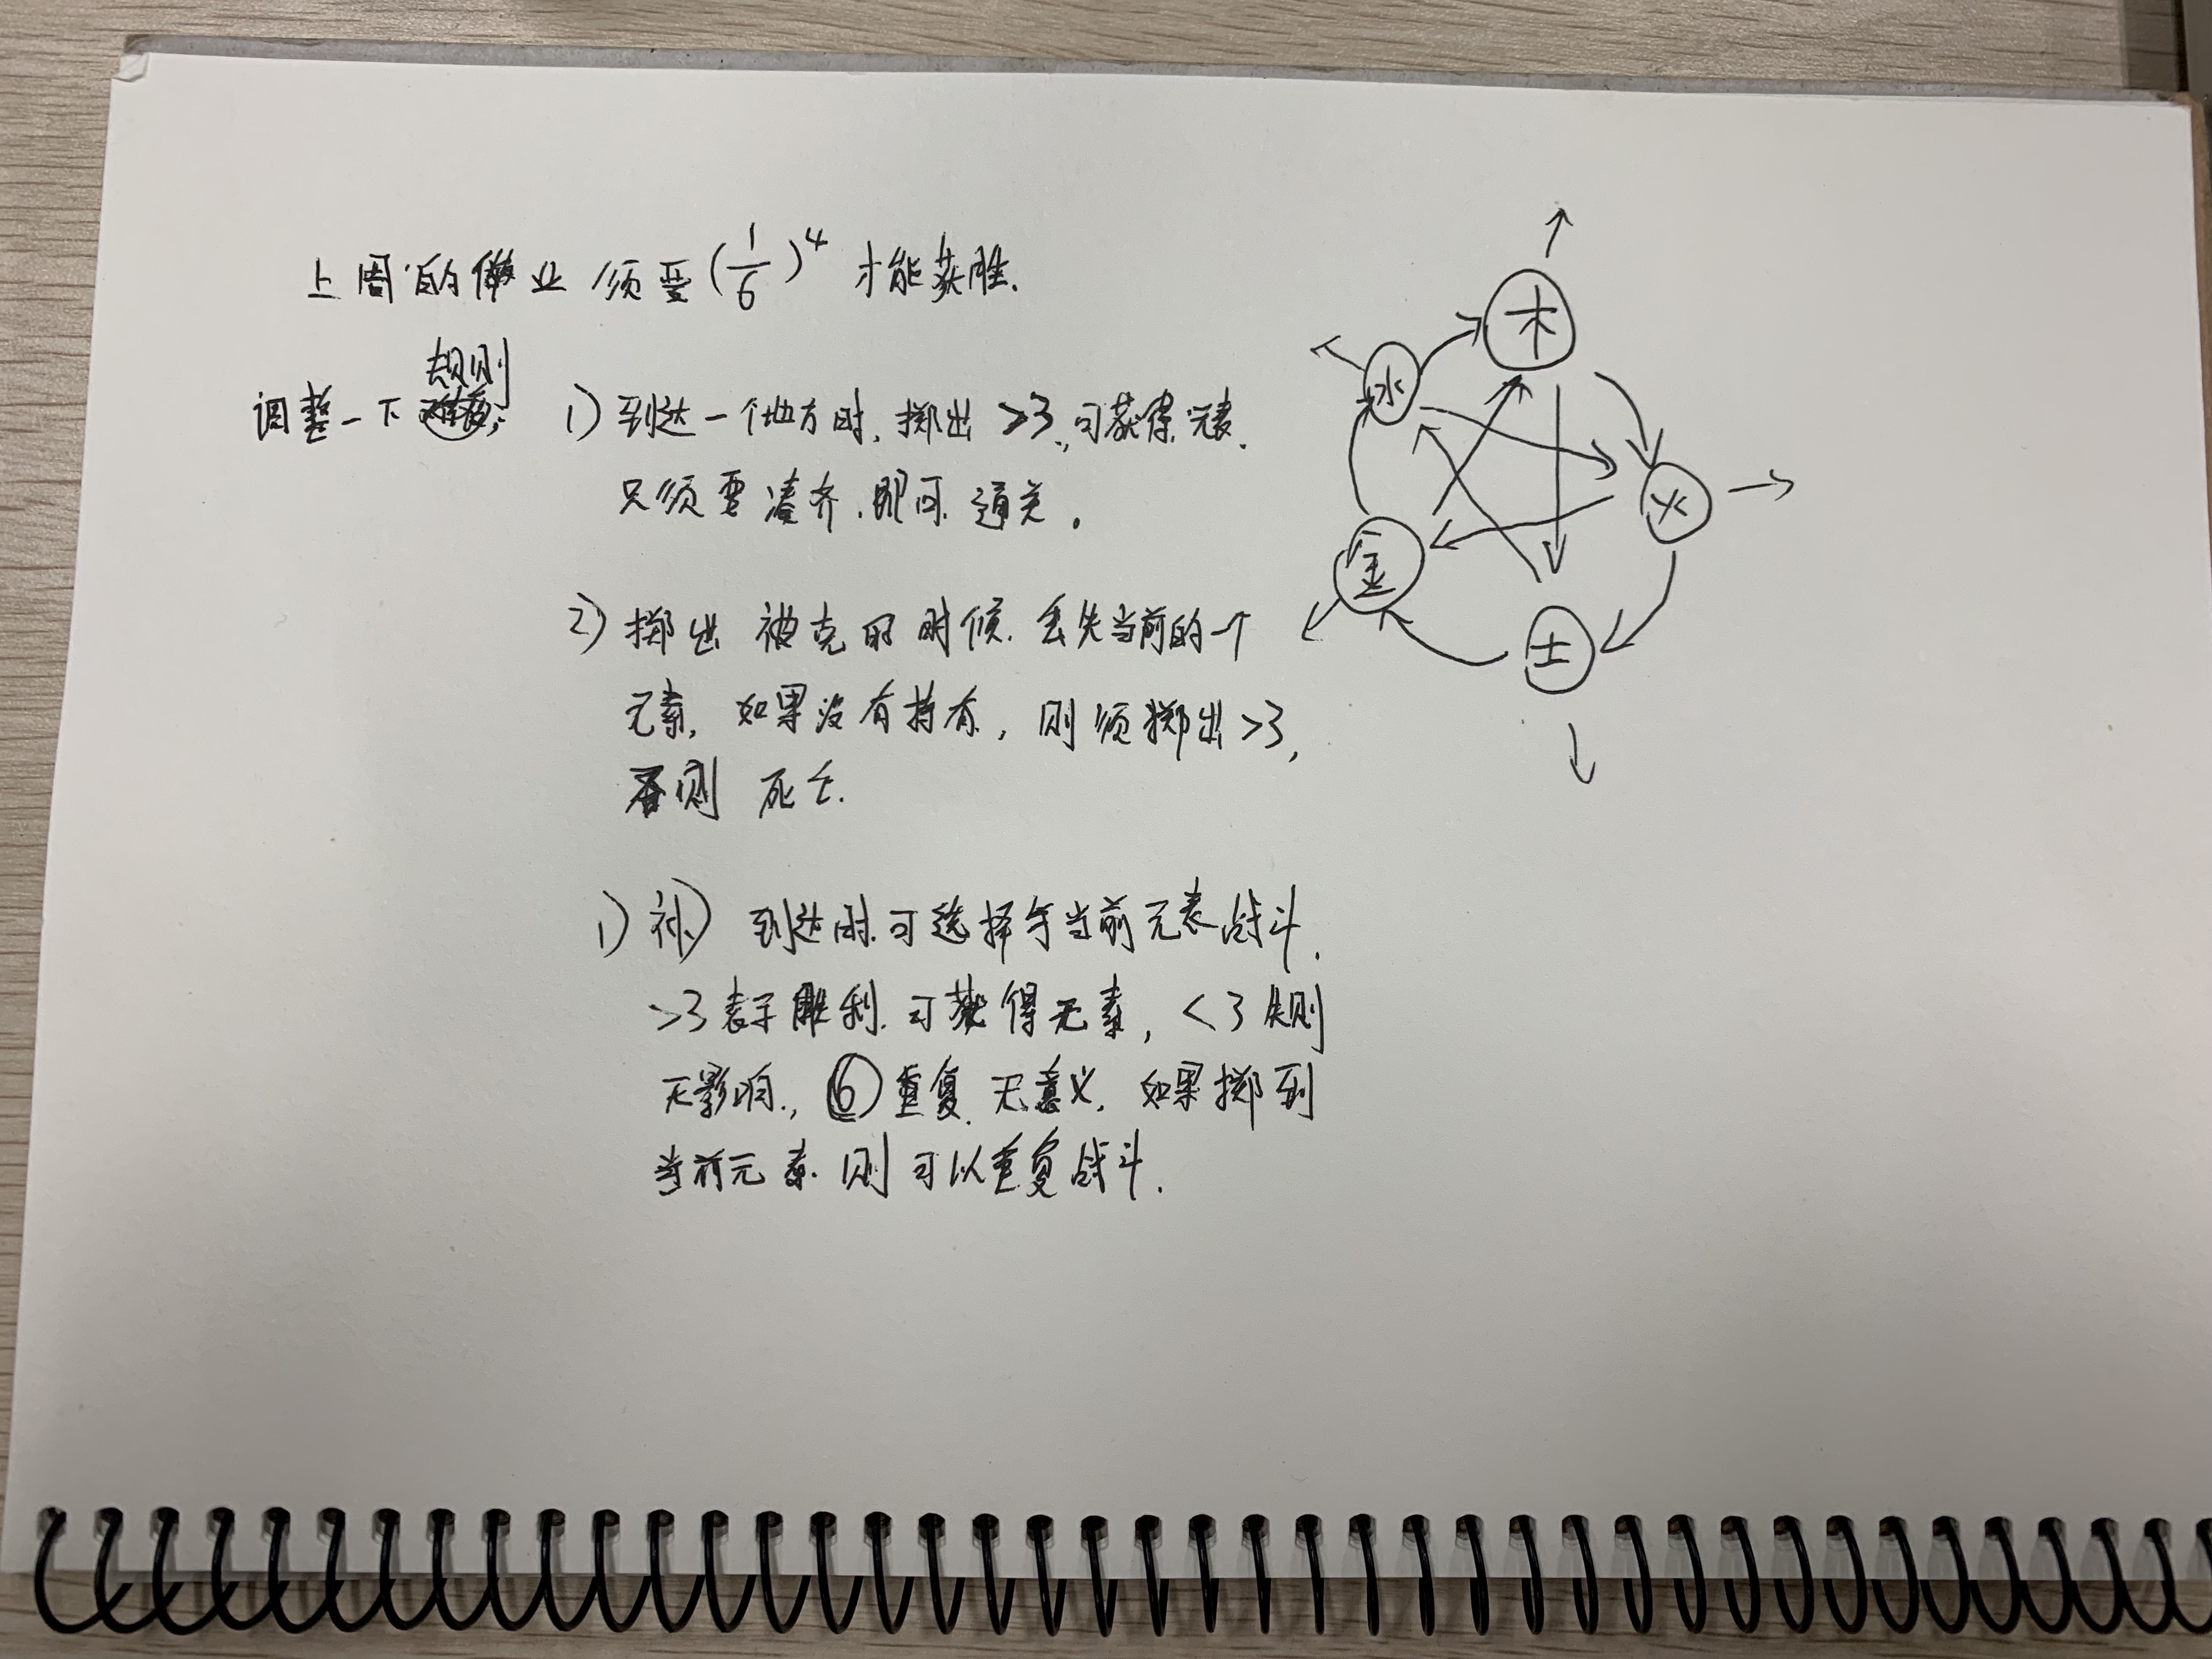 上周的作业 须要(1/6)^4 才能获胜.
规则
调整一下
1) 到达一个地方时, 掷出 >3, 可获得元素.
只须要凑齐, 即可 通关。
2) 掷出 被克的 时候. 丢失当前的一个
元素, 如果没有持有, 则须掷出>3,
否则 死亡.
1) 补) 到达时.可选择与当前元素战斗.
>3表示胜利.可获得元素, <3 则
无影响., ⑥重复 无意义, 如果掷到
当前元素. 则可以重复战斗.
木
水
火
金
土